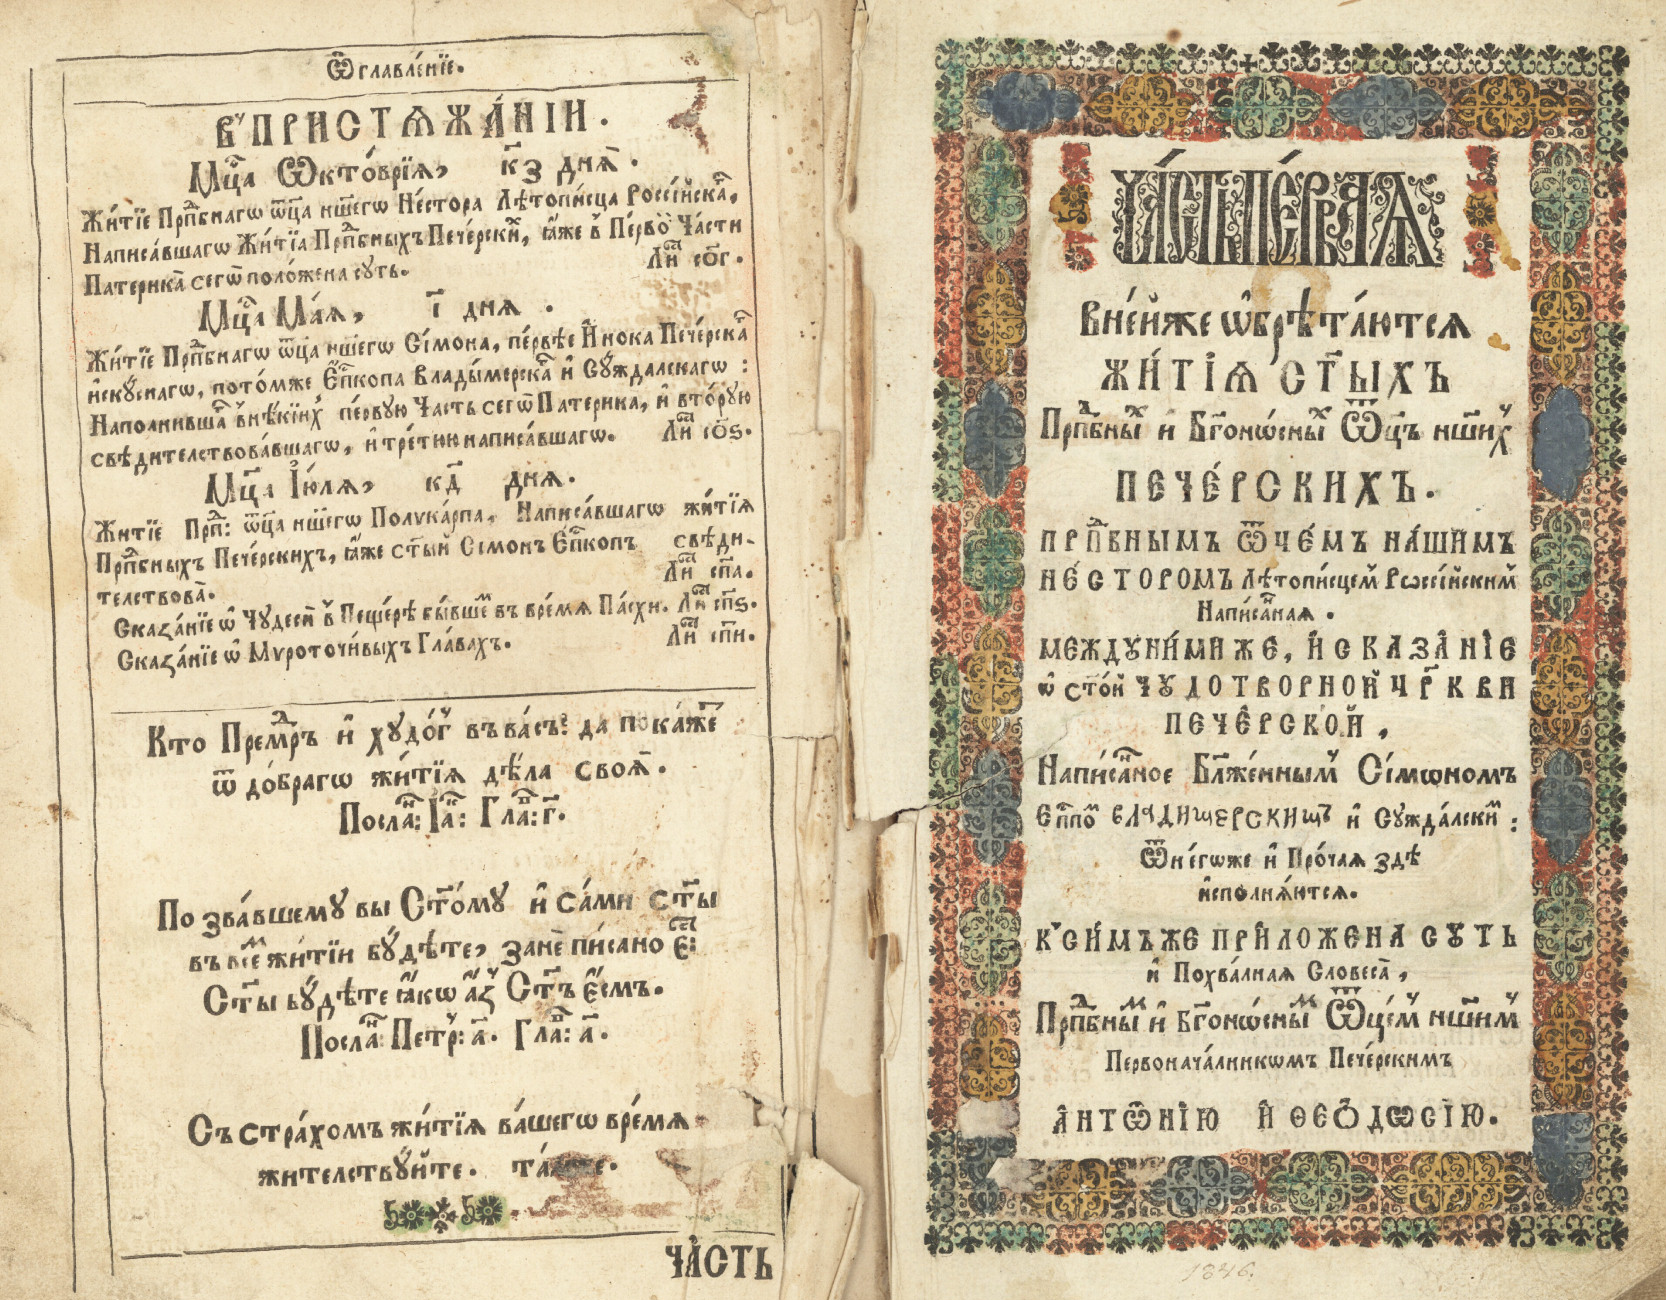 Ѿглавле́нїе.
В̾ ПРИСТѦЖА́НІИ.
Мц҃а Ѻкто́врїа, к҃з днѧ̀.
Жи́тїе Прпⷣбнагѡ ѿц҃а нш҃егѡ Не́стора Лѣтопи́сца Россі́йскаⷢ,
Написа́вшагѡ Жи́тїа Прпⷣбныхъ Пече́рскиⷯ, ꙗ҆́же в̾ Пе́рвоⷨ Ча́сти
Патерика̀ сегѡ̀ поло́жена суть. Лиⷭ҇ со҃г.
Мц҃а Ма́ѧ, і҃ днѧ.
Жи́тїе Прпⷣбнагѡ ѿц҃а нш҃егѡ Сі́мона, пе́рвѣе И҆́нока Пече́рскаⷢ
и҆ску́снагѡ, пото́мже Е҆пⷭ҇копа Влады́мерскаⷢ и҆ Сꙋ́ждалскагѡ :
Наполнившаⷢ в̾нѣ́кїиⷯ пе́рвую Часть сегѡ̀ Патерика, и҆ вто́рую
свѣ́дителствова́вшагѡ, и҆ тре́тюю написа́вшагѡ. Лиⷭ҇ со҃ѕ.
Мц҃а І҆ю́лѧ, к҃д днѧ.
Житїе Прпⷣ: ѿц҃а нш҃егѡ Полꙋка́рпа, Написа́вшагѡ жи́тїѧ
Прпⷣбныхъ Пече́рскихъ, ꙗ҆́же ст҃ый Сі́монъ Е҆пⷭ҇копъ свѣ́ди-
телствова̀. Лиⷭ҇ сп҃а.
Сказа́нїе ѡ҆ Чꙋдесѝ в̾ Пеще́рѣ бы́вшеⷨ въ вре́мѧ Па́схи. Лиⷭ҇ сп҃ѕ.
Сказа́нїе ѡ҆ Мѵроточи́выхъ Гла́вахъ. Лиⷭ҇ сп҃и.
Кто Премⷣръ и҆ хꙋдо́гⷤ въ ва́съ; да пока́жеⷮ
ѿ до́брагѡ жи́тїѧ дѣ́ла своѧ̀.
Послаⷩ: І҆аⷦ: Глаⷡ: г҃.
По зва́вшемꙋ вы Ст҃о́мꙋ и҆ са́ми ст҃ы
въ все́мⷨ жи́тїи бꙋ́дѣте, занѐ пи́сано е҆ⷭ҇:
Ст҃ы бꙋ́дѣте ꙗ҆́кѡ а҆́зⷤ Ст҃ъ е҆́смъ.
Послаⷩ: Петр: а҃. Глаⷡ: а҃.
Съ стра́хомъ жи́тїѧ ва́шегѡ вре́мѧ
жителствꙋ́йте.
ЧА́СТЬ
ЧА́СТЬ ПЕ́РВАѦ
В не́йже ѡ҆брѣта́ютсѧ
ЖИ́ТІѦ СТ҃ЫХЪ
Прпⷣбныⷯ и҆ Бг҃оно́сныⷯ Ѻ҆тц҃ъ нш҃иⷯ
ПЕЧЕ́РСКИХЪ.
ПРПⷣБНЫМЪ Ѿ҃ЧЕ́МЪ НА́ШИМЪ
НЕ́СТОРОМЪ Лѣтопи́сцеⷨ Рѡссі́йскимⷨ
Напи́саⷩнаѧ.
МЕЖДꙊ НИ́МИЖЕ, И҆ СКАЗА́НІЕ
ѡ҆ сто́й ЧꙊДОТВОРНОЙ ЦРⷦ҇КВИ
ПЕЧЕ́РСКОЙ,
Написа́ⷩное Блⷤе́ннымⷨ Сі́мѡномъ
Е҆пⷭ҇поⷨ ВЛАДИМЕРСКИМЪ и҆ Сꙋжда́лскиⷨ :
Ѿ не́гѡже и҆ Про́чаѧ здѣ
и҆сполнѧ́ютсѧ.
К̾ СИ́МЪЖЕ ПРИ҆ЛОЖЕНА СꙊТЬ
и҆ Похва́лнаѧ Словеса̀,
Прпⷣбныⷨ и҆ Бг҃оно́сныⷨ Ѻ҆тц҃е́мⷨ нш҃имⷨ
Первонача́лникѡмъ Пече́рскимъ
А҆НТѠ́НІЮ И҆ ѲЕѺДѠ́СІЮ.
1846.